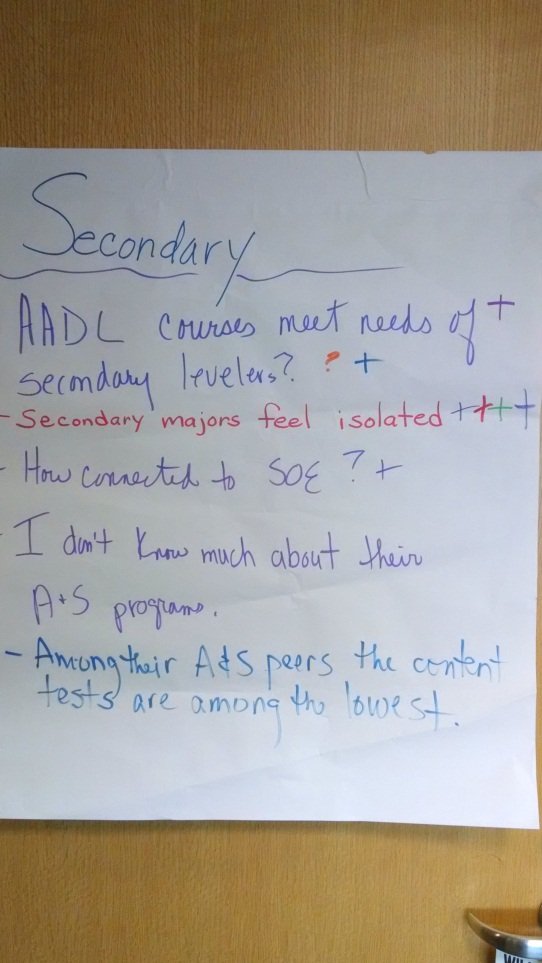 Secondary
AADL courses meet needs of +
secondary levelers? ? +
- Secondary majors feel isolated ++++
- How connected to SOE ? +
- I don't know much about their
A+S programs.
- Among their A&S peers the content
tests are among the lowest.